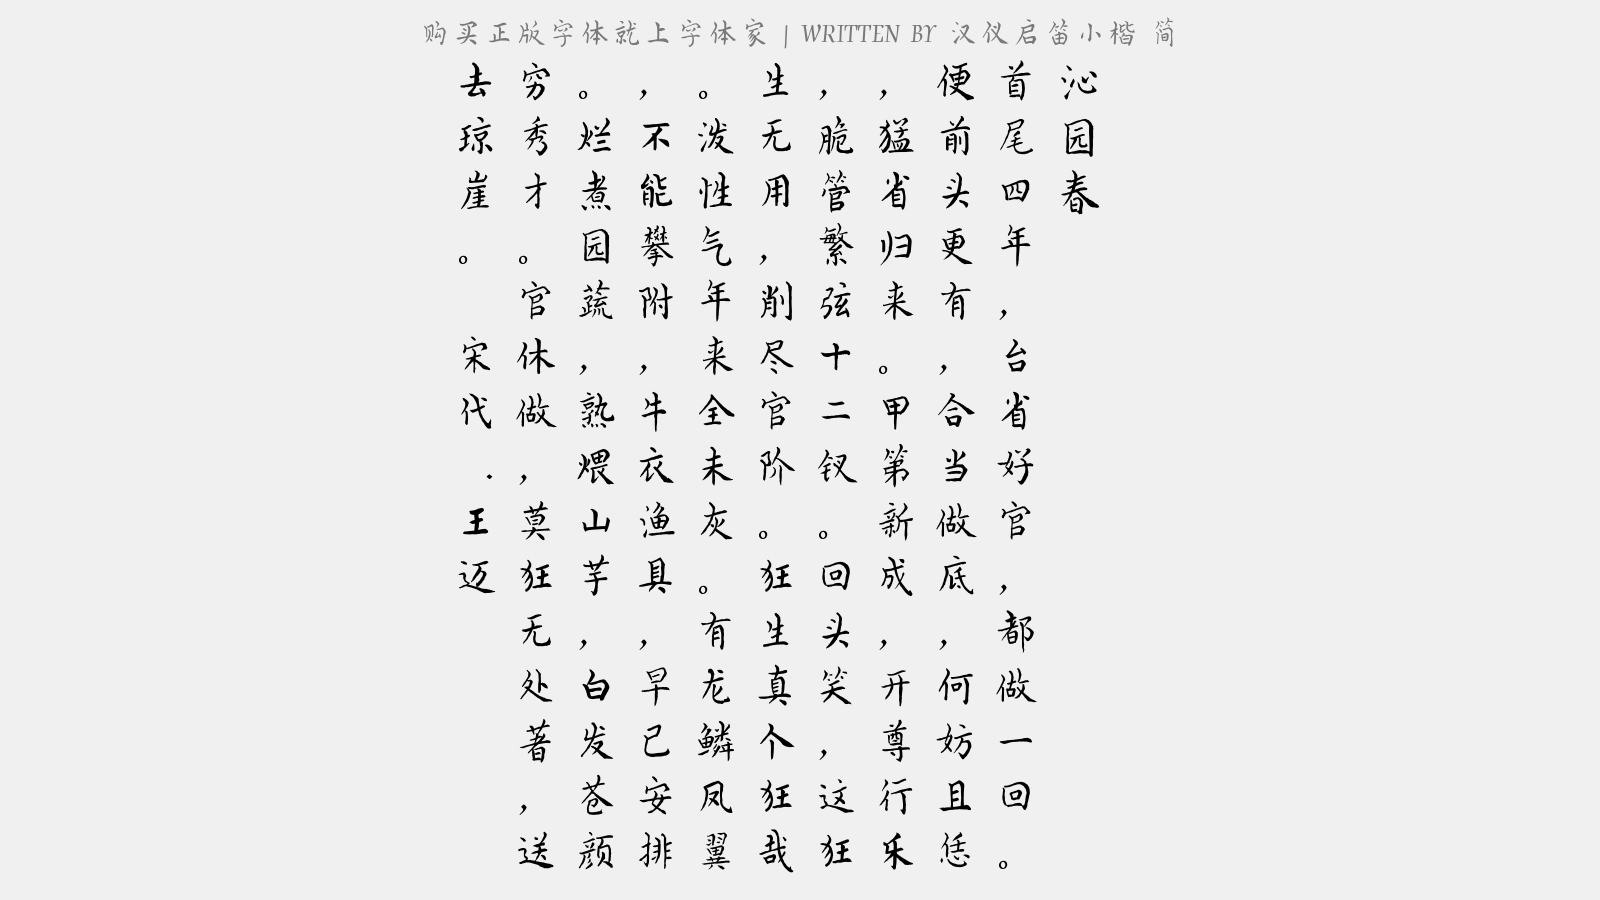 购买正版字体就上字体家 | WRITTEN BY 汉仪启笛小楷 简
沁园春
首尾四年，台省好官，都做一回。
便前头更有，合当做底，何妨且恁
，猛省归来。甲第新成，开尊行乐
，脆管繁弦十二钗。回头笑，这狂
生无用，削尽官阶。狂生真个狂哉
。泼性气年来全未灰。有龙鳞凤翼
，不能攀附，牛衣渔具，早已安排
。烂煮园蔬，熟煨山芋，白发苍颜
穷秀才。官休做，莫狂无处著，送
去琼崖。
宋代.王迈